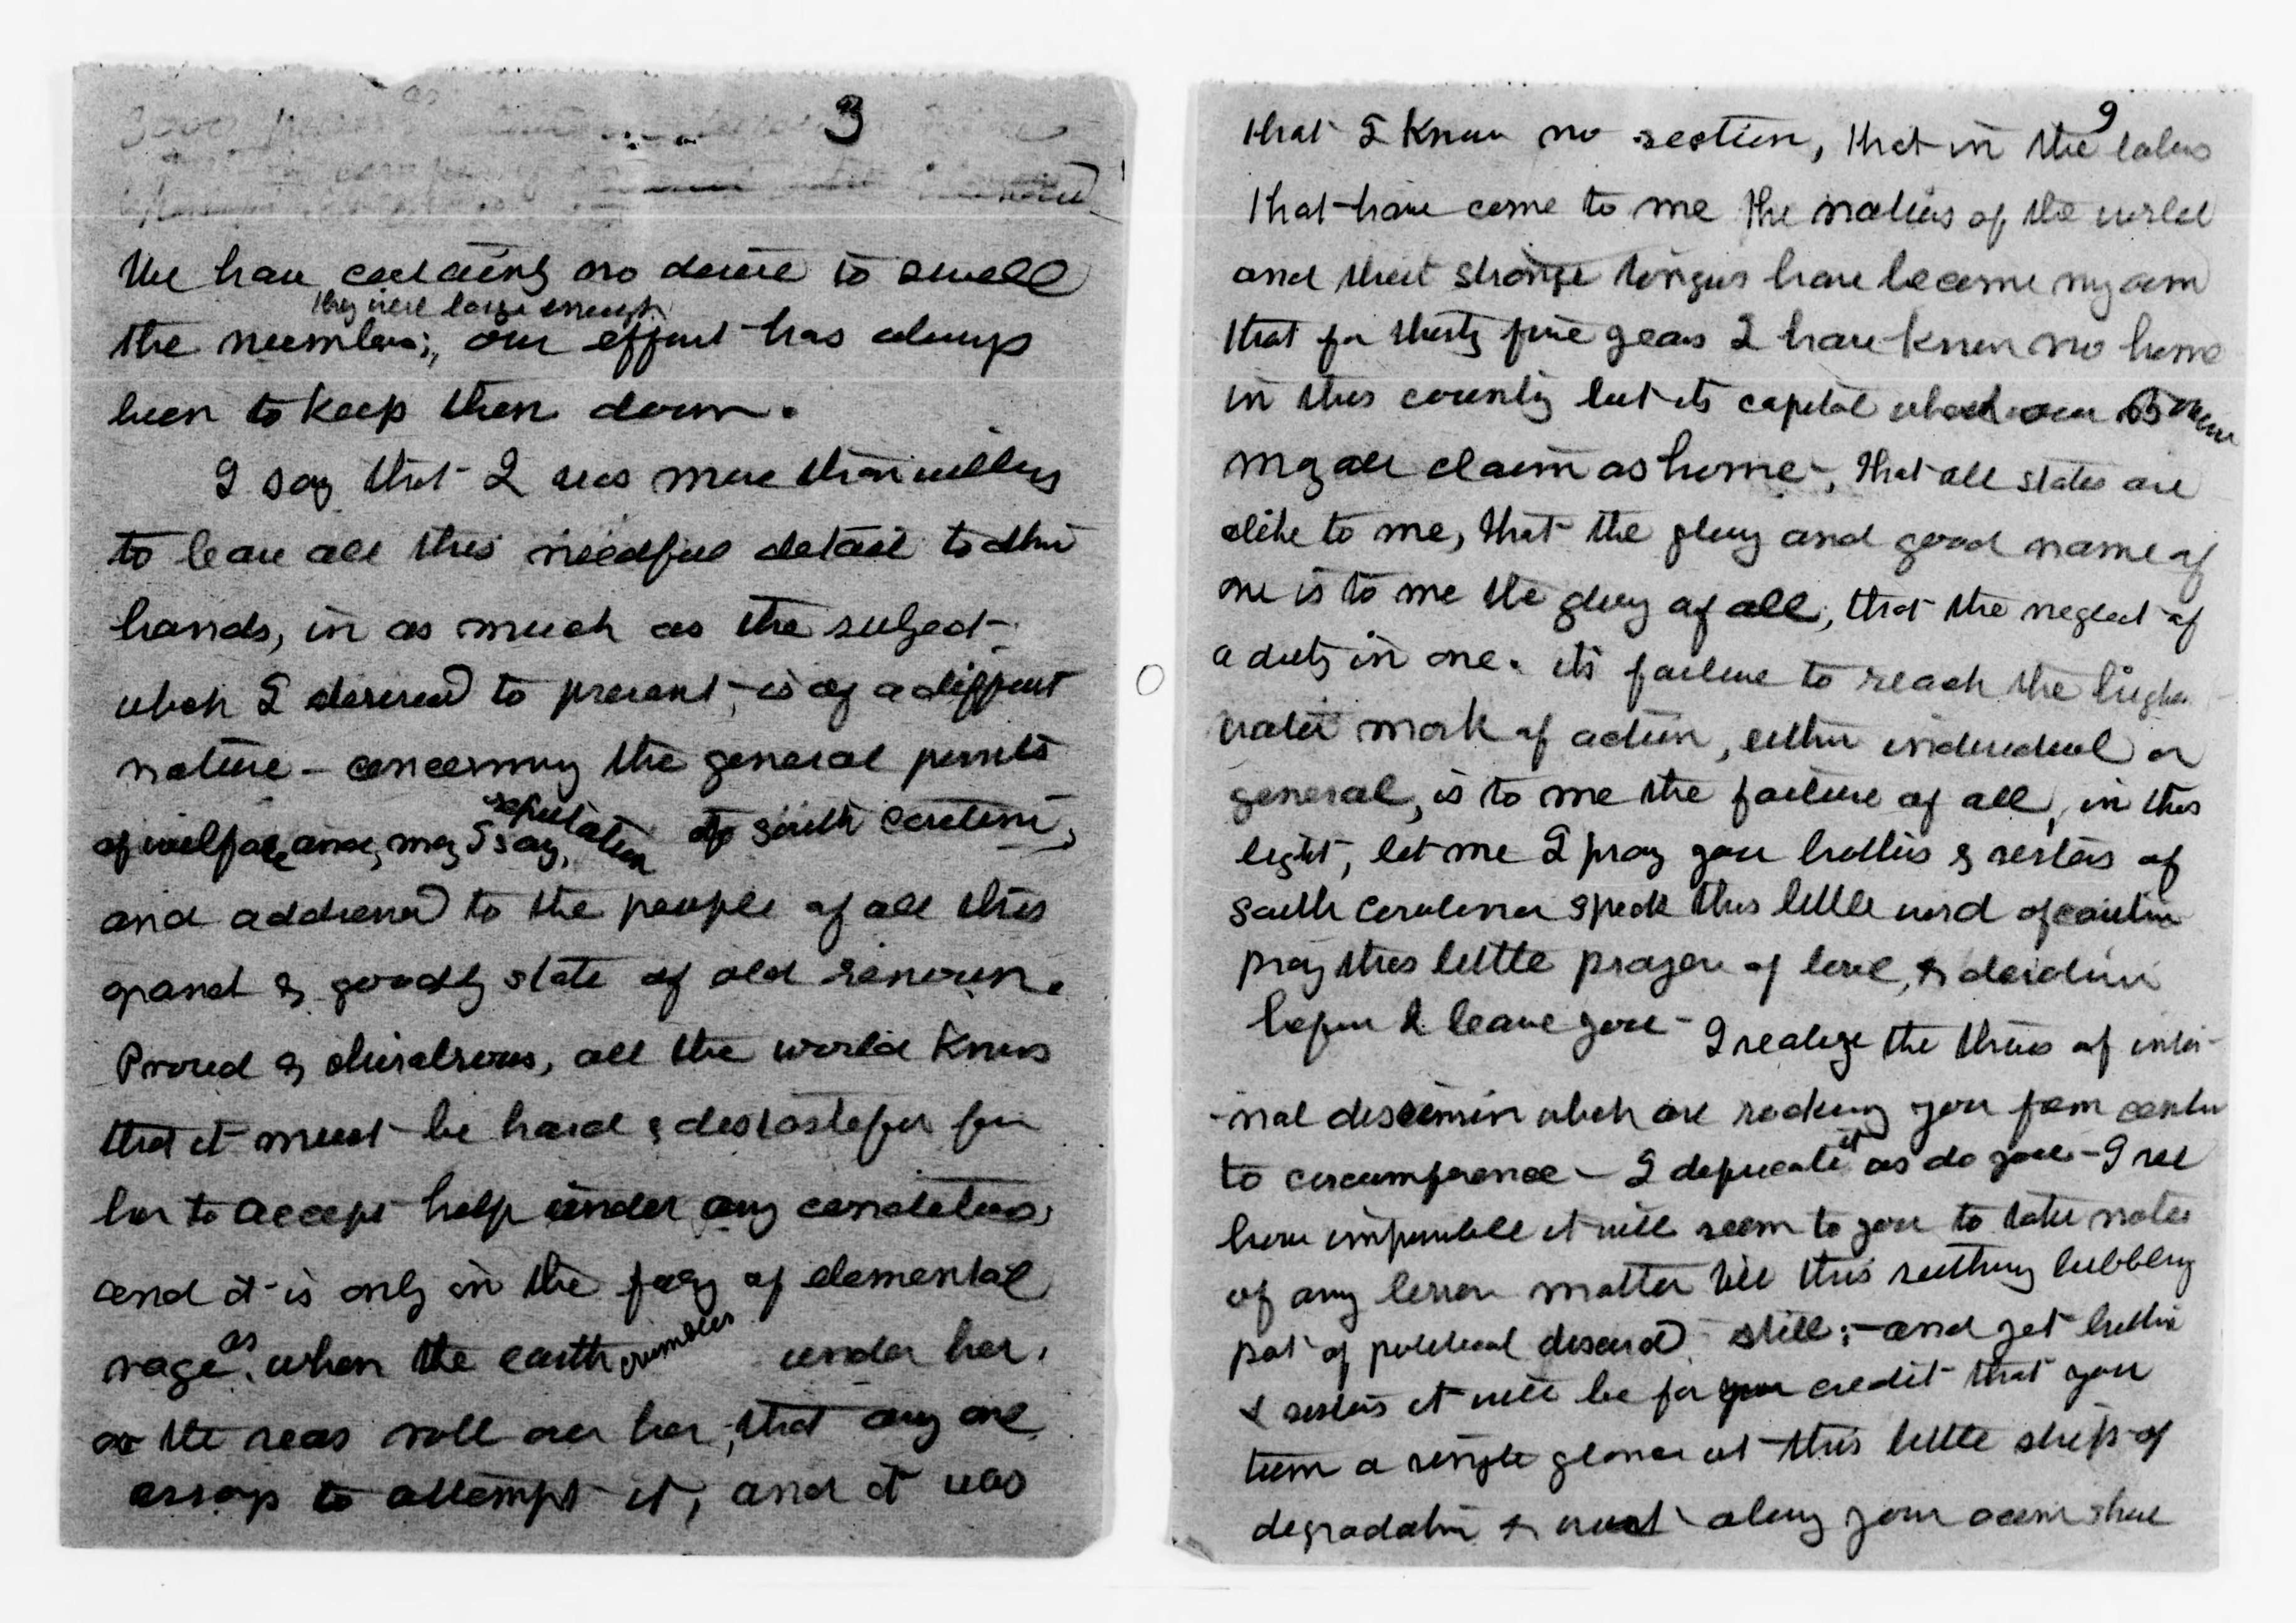 3
We have certainly no desire to swell
they were large enough
the numbers; our effort has always
been to keep them down.
I say that I was more than willing
to leave all this needful detail to other
hands, in as much as the subject
which I desired to present, is of a different
nature - concerning the general points
of welfare, and, may I say, reputation of South Carolina,
and addressed to the people of all this
grand & goodly state of old renown.
Proud & chivalrous, all the world knows
that it must be hard & distasteful for
her to accept help under any conditions,
and it is only in the fury of elemental
rage, as when the earth crumbles under her,
or the seas roll over her, that any one
essays to attempt it, and it was
9
that I know no section, that in the labors
that have come to me the nations of the world
and their strange tongues have become my own
that for thirty five years I have known no home
in this country but its capital which
may all claim as home, that all states are
alike to me, that the glory and good name of
one is to me the glory of all, that the neglect of
a duty in one. its failure to reach the higher
water mark of action, either individual or
general, is to me the failure of all, in this
light, let me I pray you brothers & sisters of
South Carolina speak this little word of caution
pray this little prayer of love, &
before I leave you - I realize the throes of inter-
-nal dissension which are rocking you from center
to circumference - I deprecate it as do you - I see
how impossible it will seem to you to take note
of any lesser matter till this seething bubbling
pot of political discord still; - and yet brothers
& sisters it will be for your credit that you
turn a single glance at this little strip of
degradation & want along your ocean shore